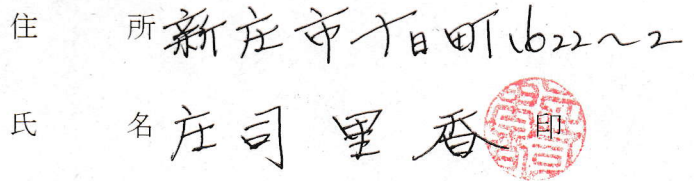 住所 新庄市十日町1622~2
氏名 庄司里香 印